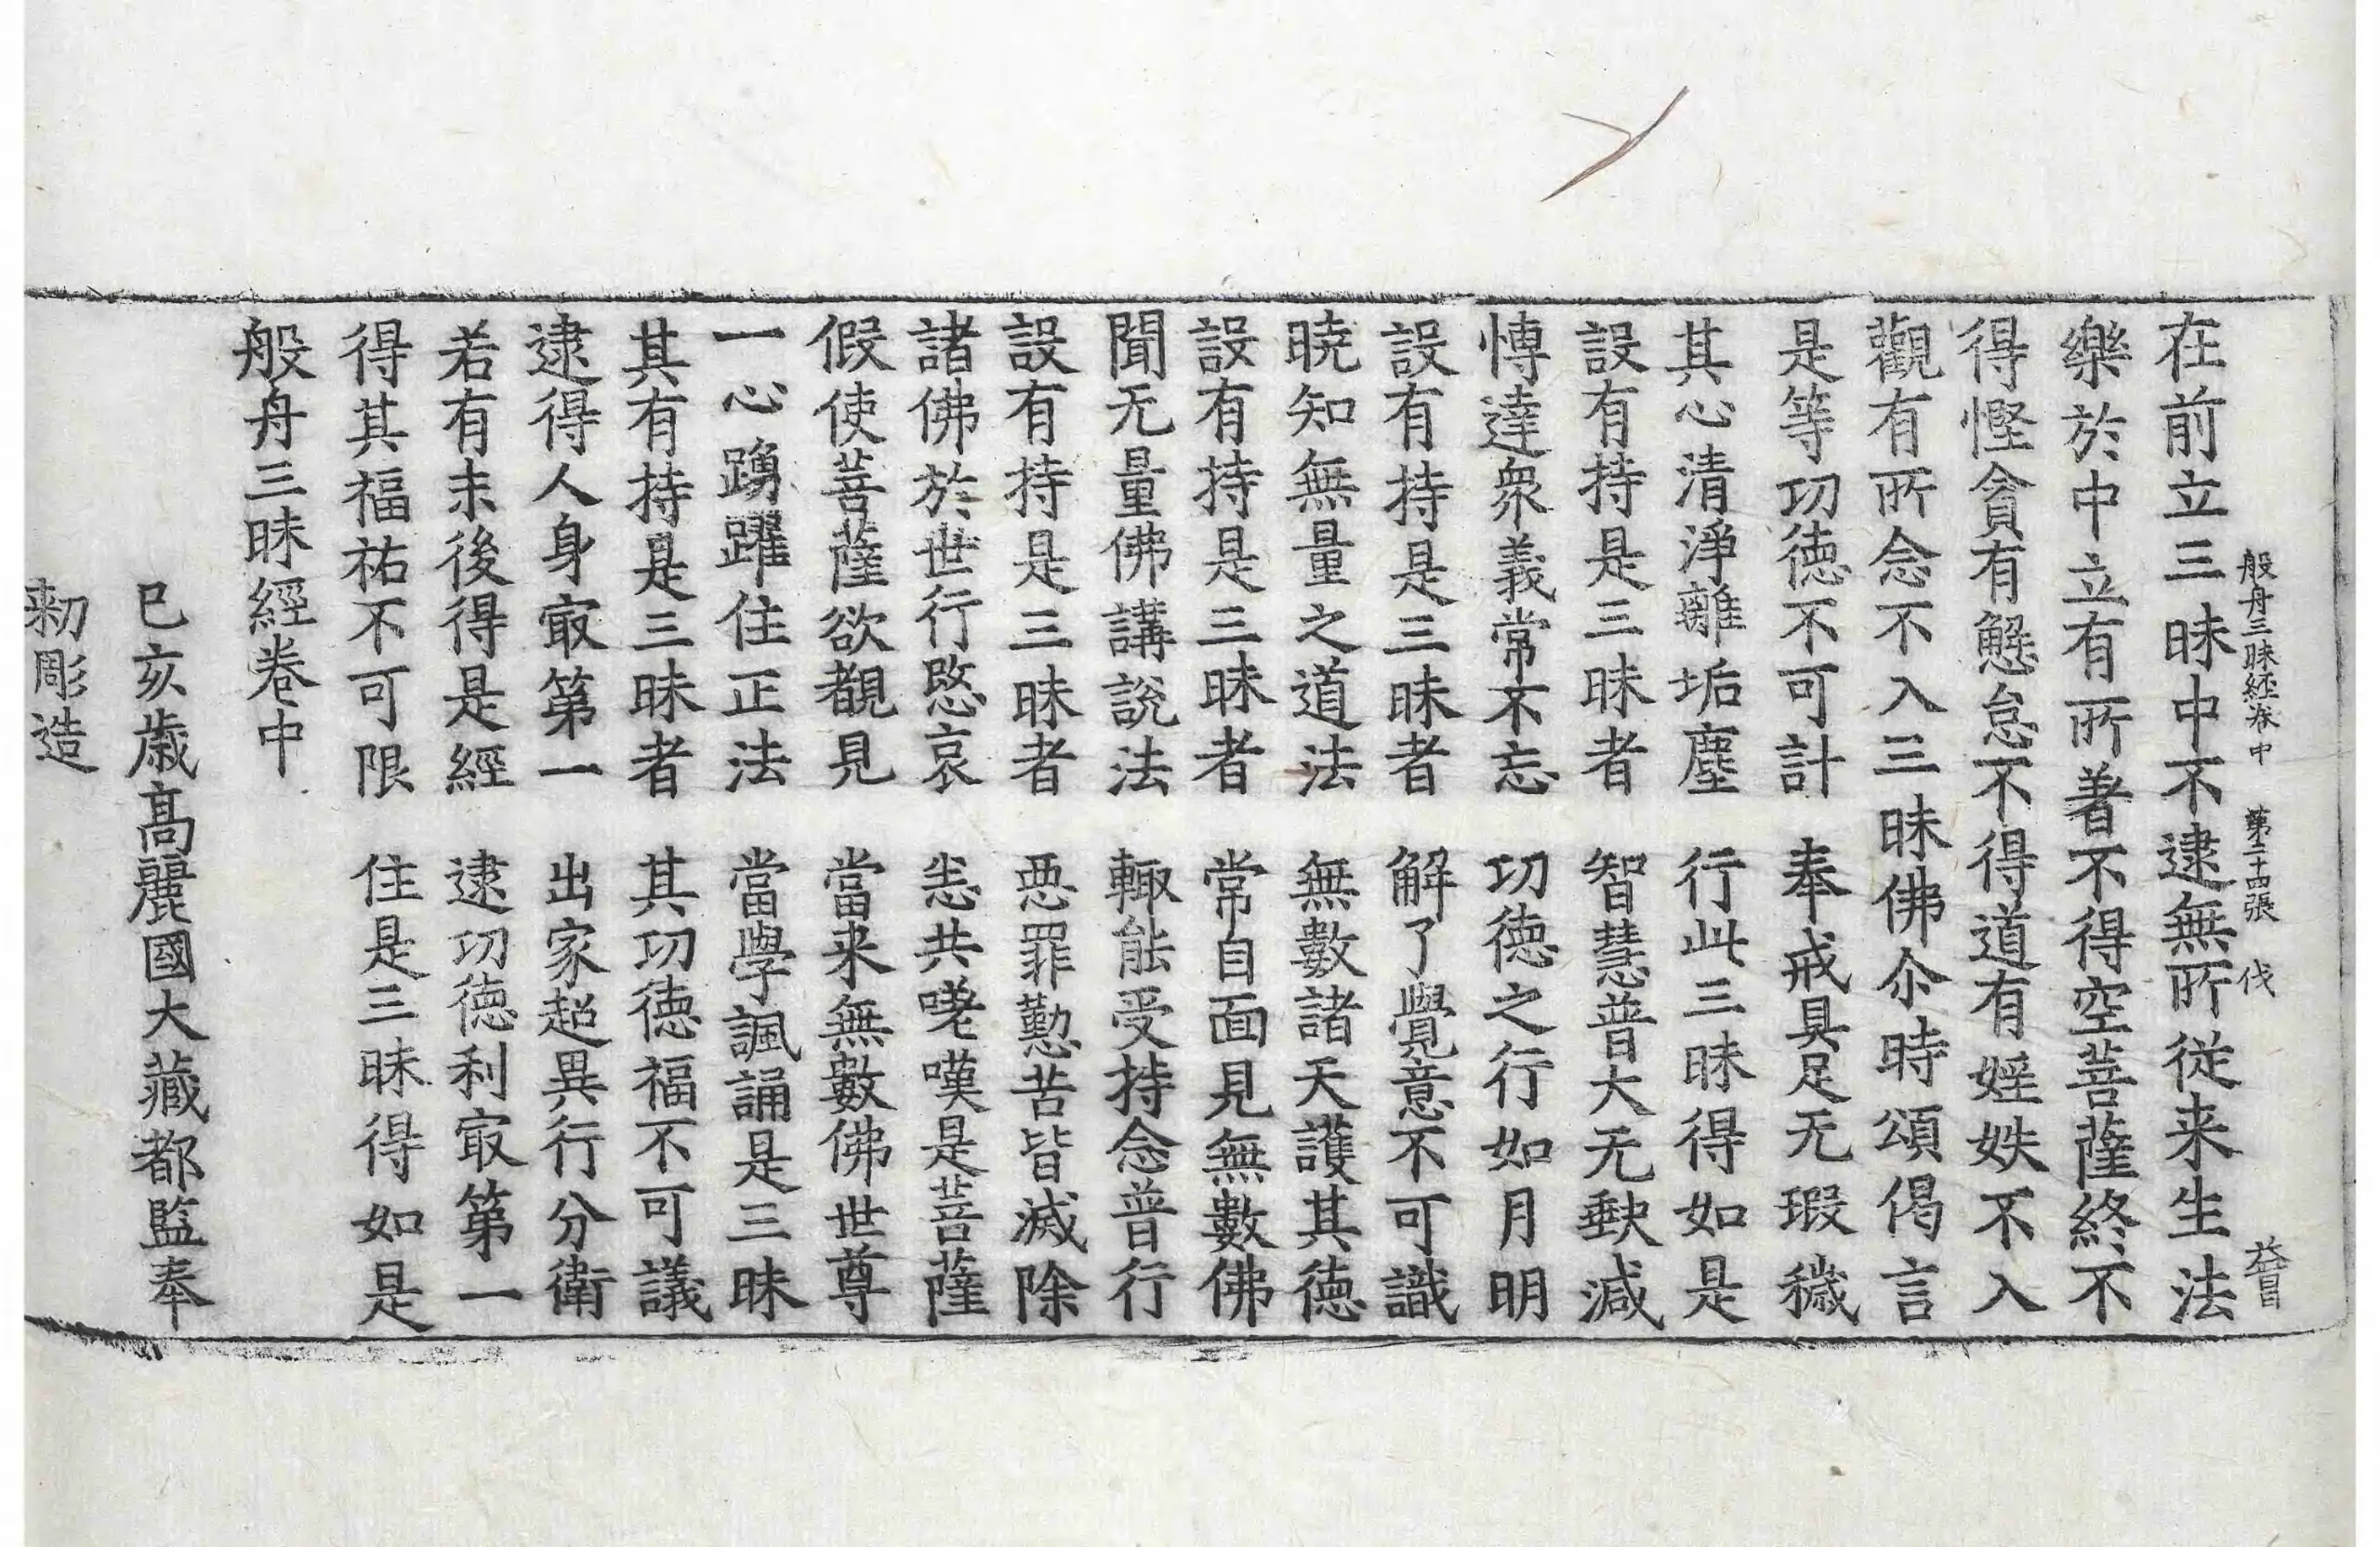 般舟三昧經卷中 第二十四張 伐
在前立三昧中不逮無所從来生法
樂於中立有所著不得空菩薩終不
得慳貪有懈怠不得道有婬妷不入
觀有所念不入三昧佛尒時頌偈言
是等㓛德不可計 奉戒具足无瑕穢
其心清淨離垢塵 行此三昧得如是
設有持是三昧者 智慧普大无𡙇減
愽達衆義常不忘 㓛德之行如月明
設有持是三昧者 解了覺意不可識
曉知無量之道法 無數諸天護其德
設有持是三昧者 常自面見無數佛
聞无量佛講說法 輙能受持念普行
設有持是三昧者 惡罪懃苦皆滅除
諸佛於世行愍哀 悉共嗟嘆是菩薩
假使菩薩欲覩見 當来無數佛世尊
一心踊躍住正法 當學諷誦是三昧
其有持是三昧者 其㓛德福不可議
逮得人身㝡第一 出家超異行分衛
若有末後得是經 逮㓛德利㝡第一
得其福祐不可限 住是三昧得如是
般舟三昧經卷中
己亥歲高麗國大藏都監奉
勑彫造